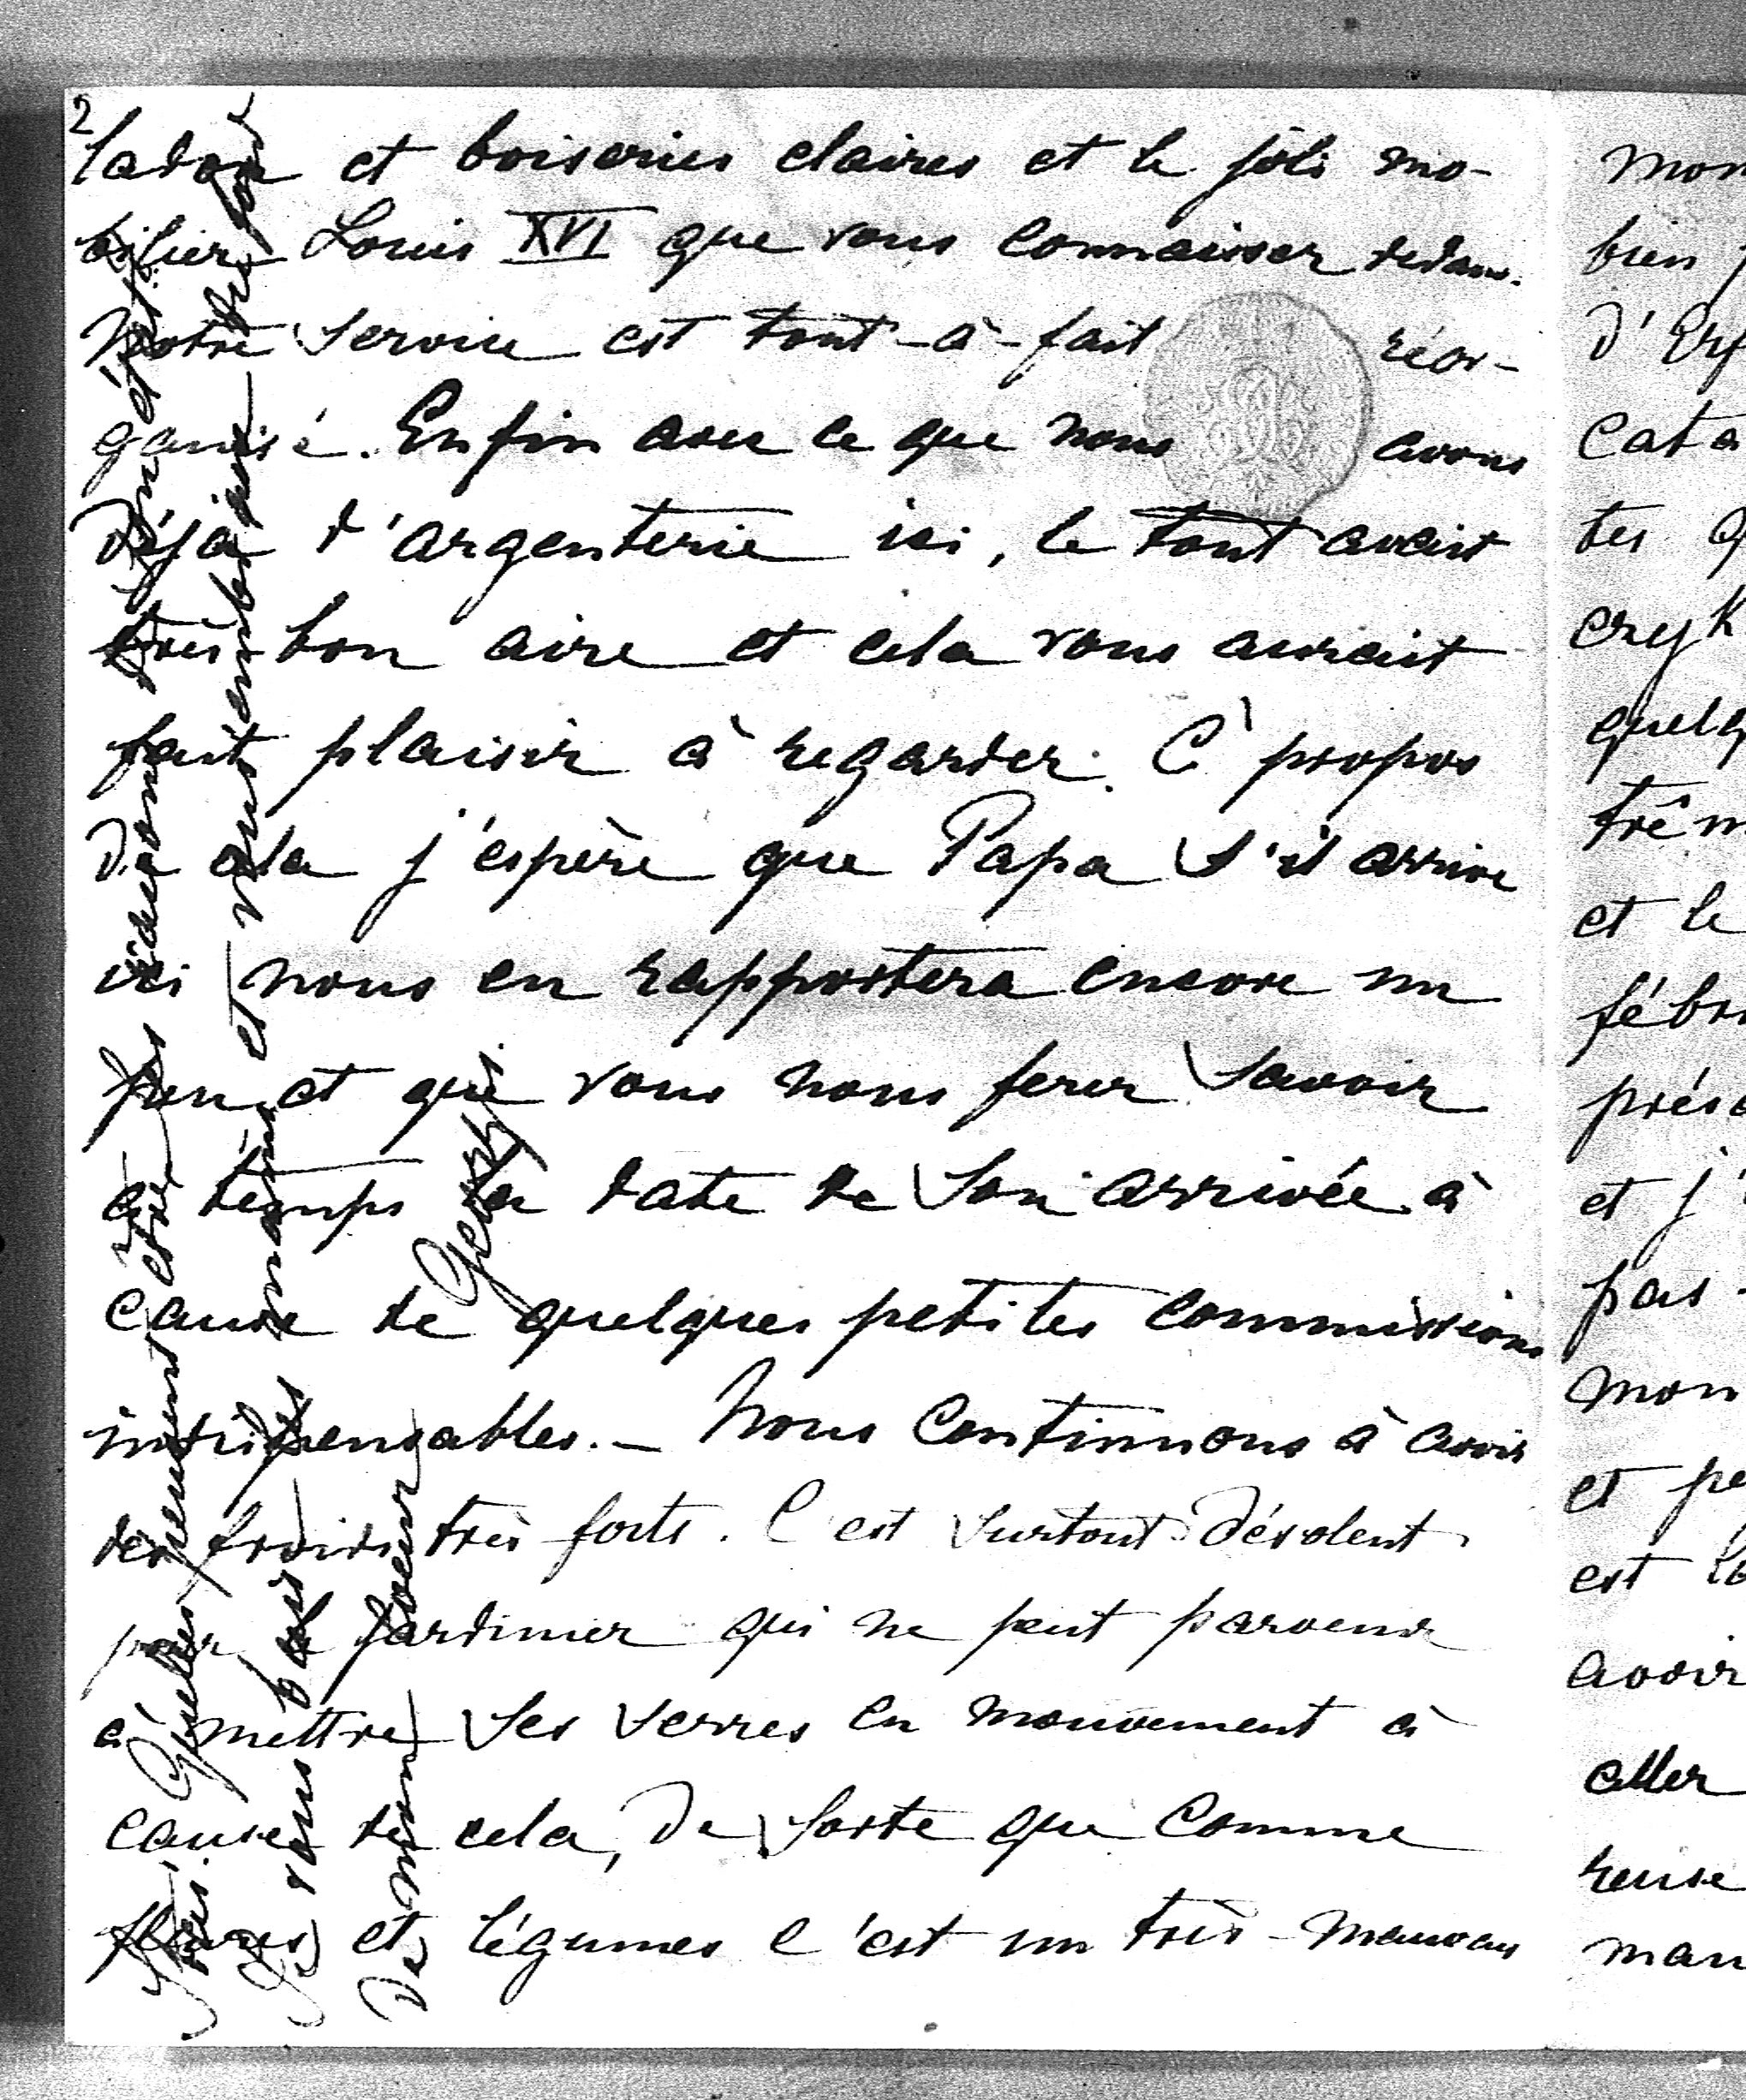 2
ladon et boiseries claires et le joli mo-
bilier Louis XVI que vous connaissez dedans.
Notre service est tout-à-fait réor-
ganisé. Enfin avec ce que nous avons
déjà d'argenterie ici, le tout avait
très-bon aire et cela vous aurait
fait plaisir à regarder. C' propos
de cela j'espère que Papa s'il arrive
ici nous en rapportera encore un
peu et que vous nous ferez savoir
à temps la date de son arrivée à
cause de quelques petites commissions
indispensables. – Nous continuons à avoir
des froids très-forts. C'est surtout désolent
pour le jardinier qui ne peut parvenir
à mettre ses serres en mouvement à
cause de cela, de sorte que comme
fleures et légumes c'est un très-mauvais
Je vous baise mains et vous embrasse
de mon coeur
Georgi.
mon
bien
d'
cata
tes
quelq
trêm
et le
fébr
prés
et j'
pas
mon
et pe
est
avoir
aller
reuse
man